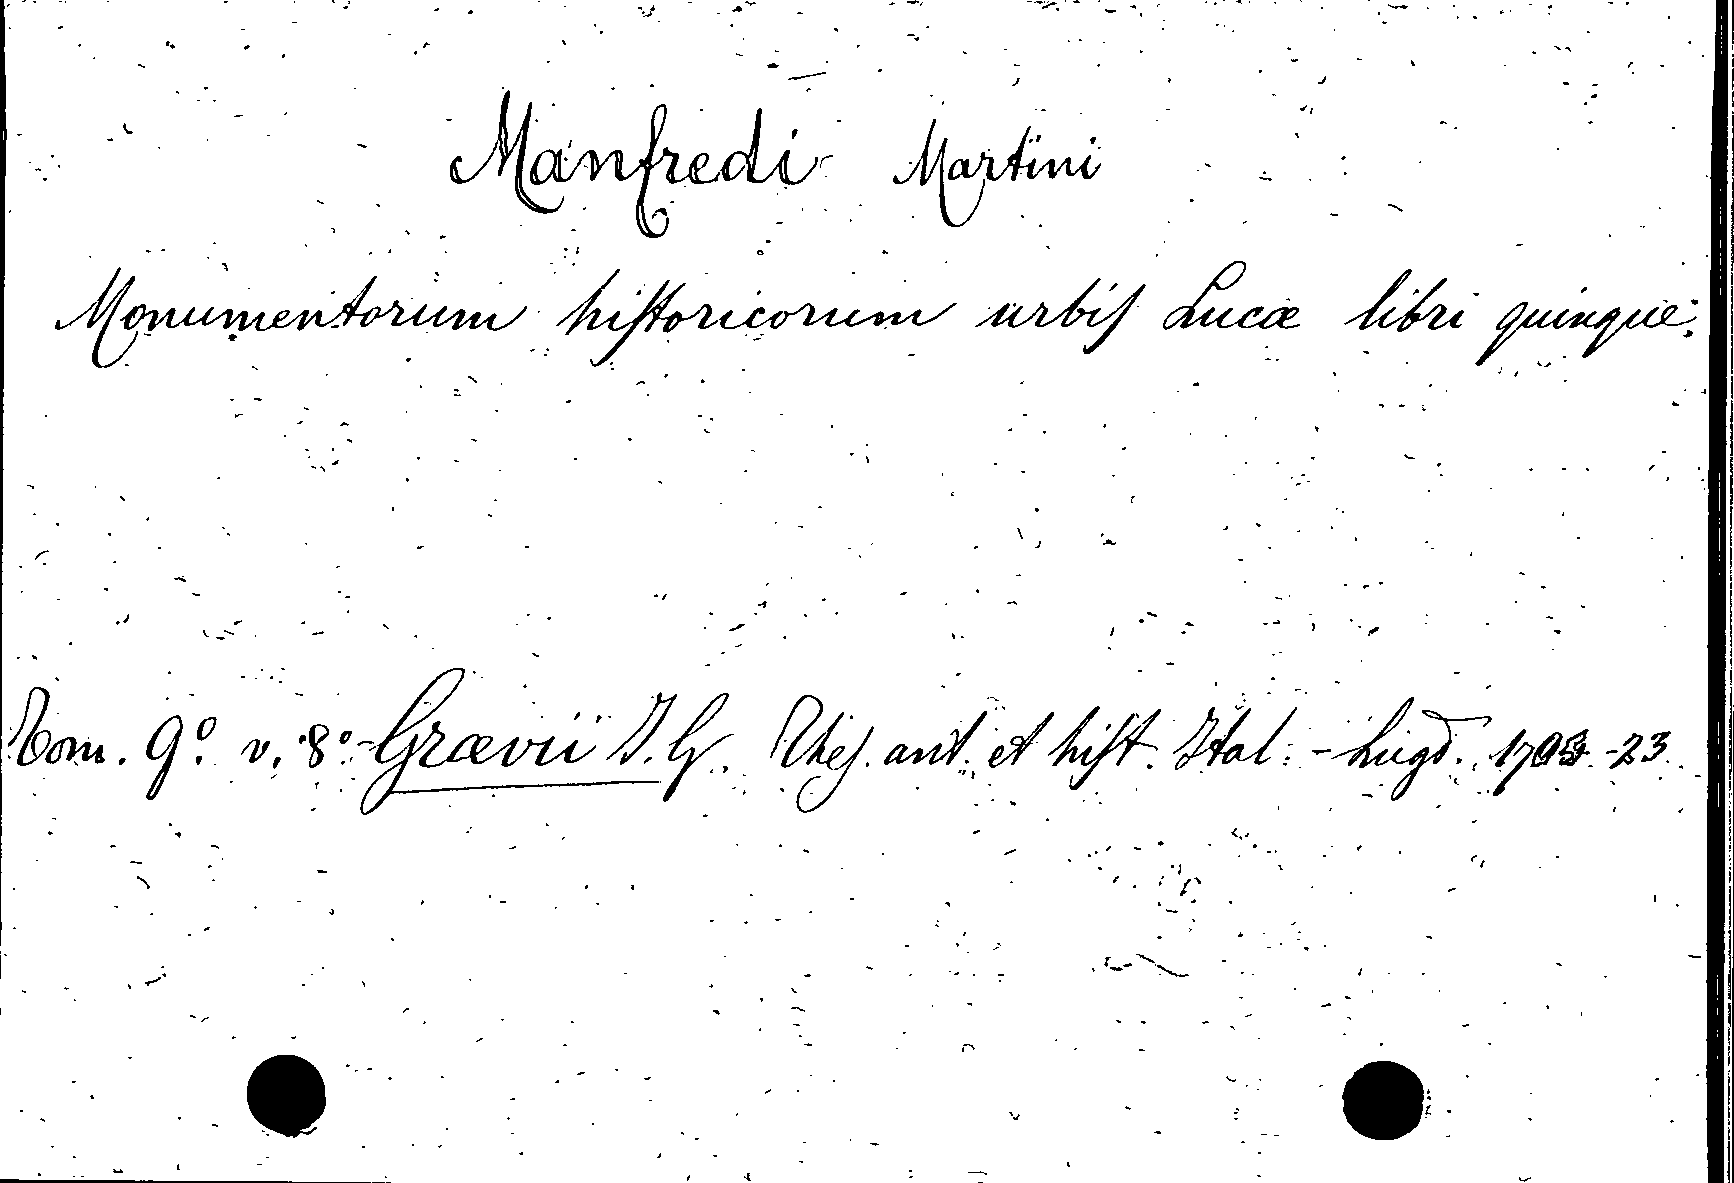 Manfredi Martini
Monumentorum hiſtoricorum urbiſ Lucæ libri quinque.
Tom. 9º v. 8º - Grævii I. G. Theſ. ant. et hiſt. Ital. - Lugd. -23